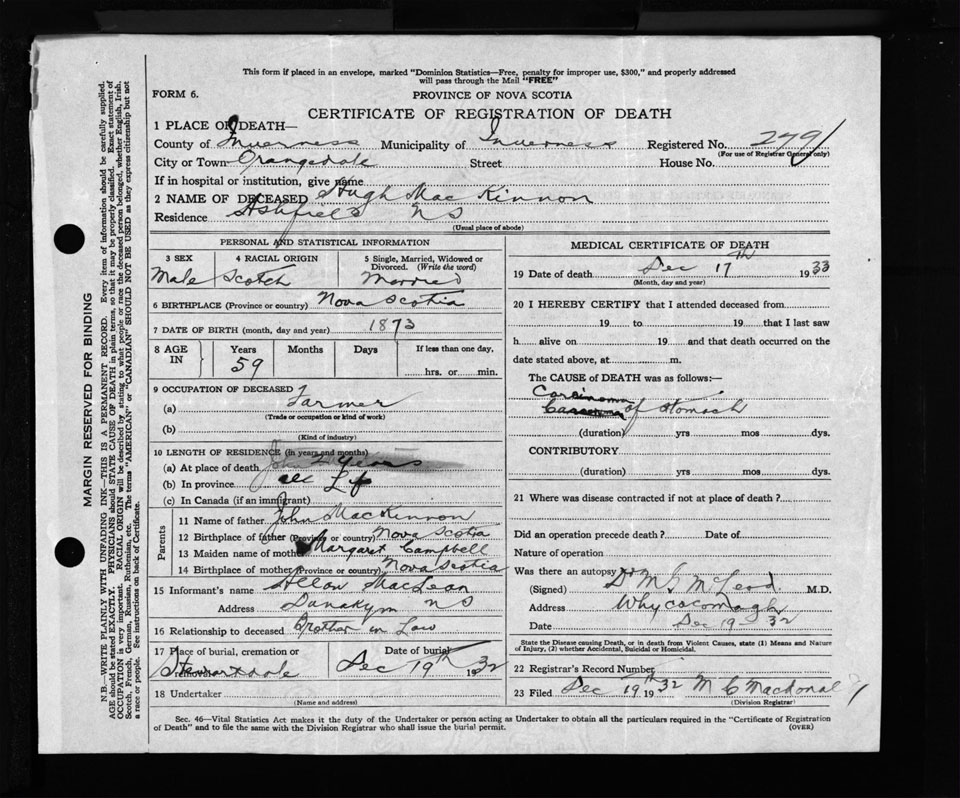 This form if placed in an envelope, marked "Dominion Statistics—Free, penalty for improper use, $300," and properly addressed
will pass through the Mail "FREE"
FORM 6.
PROVINCE OF NOVA SCOTIA
CERTIFICATE OF REGISTRATION OF DEATH
1 PLACE OF DEATH—
County of Inverness Municipality of Inverness Registered No. 2791
(For use of Registrar General only)
City or Town Orangedale Street House No.
If in hospital or institution, give name
2 NAME OF DECEASED Hugh Mac Kinnon
Residence Ashfield N S
(Usual place of abode)
PERSONAL AND STATISTICAL INFORMATION
3 SEX 4 RACIAL ORIGIN 5 Single, Married, Widowed or
Divorced. (Write the word)
Male Scotch Married
6 BIRTHPLACE (Province or country) Nova Scotia
7 DATE OF BIRTH (month, day and year) 1873
8 AGE IN Years Months Days If less than one day,
59 hrs. or min.
9 OCCUPATION OF DECEASED
(a) Farmer
(Trade or occupation or kind of work)
(b)
(Kind of industry)
10 LENGTH OF RESIDENCE (in years and months)
(a) At place of death 2 years
(b) In province all Life
(c) In Canada (if an immigrant)
Parents
11 Name of father John MacKinnon
12 Birthplace of father (Province or country) Nova Scotia
13 Maiden name of mother Margaret Campbell
14 Birthplace of mother (Province or country) Nova Scotia
15 Informant's name Allan MacLean
Address N S
16 Relationship to deceased Brother in Law
17 Place of burial, cremation or removal Date of burial
Stewartdale Dec 19th 1932
18 Undertaker
(Name and address)
MEDICAL CERTIFICATE OF DEATH
19 Date of death Dec 17th 1933
(Month, day and year)
20 I HEREBY CERTIFY that I attended deceased from
19 to 19 that I last saw
h alive on 19 and that death occurred on the
date stated above, at m.
The CAUSE OF DEATH was as follows:—
Carcinoma
of Stomach
(duration) yrs mos dys.
CONTRIBUTORY
(duration) yrs mos dys.
21 Where was disease contracted if not at place of death?
Did an operation precede death? Date of
Nature of operation
Was there an autopsy
(Signed) Dr M G McLeod M.D.
Address Whycocomagh
Date Dec 19 32
State the Disease causing Death, or in death from Violent Causes, state (1) Means and Nature
of Injury, (2) whether Accidental, Suicidal or Homicidal.
22 Registrar's Record Number
23 Filed Dec 19th 1932 M C Macdonald
(Division Registrar)
Sec. 46—Vital Statistics Act makes it the duty of the Undertaker or person acting as Undertaker to obtain all the particulars required in the "Certificate of Registration
of Death" and to file the same with the Division Registrar who shall issue the burial permit.
(OVER)
MARGIN RESERVED FOR BINDING
N.B.—WRITE PLAINLY WITH UNFADING INK—THIS IS A PERMANENT RECORD. Every item of information should be carefully supplied.
AGE should be stated EXACTLY. PHYSICIANS should STATE CAUSE OF DEATH in plain terms, so that it may be properly classified. Exact statement of
OCCUPATION is very important. RACIAL ORIGIN will be described by stating to what people or race the deceased person belonged, whether English, Irish,
Scotch, French, German, Russian, Ruthenian, etc. The terms "AMERICAN" or "CANADIAN" SHOULD NOT BE USED as they express citizenship but not
a race or people. See instructions on back of Certificate.